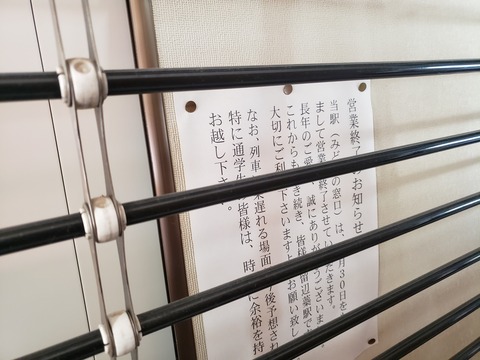 営業終了のお知らせ
当駅(みどりの窓口)は、 月30日を
まして営業 終了させてい だきます。
長年のご愛 誠にありが うございま
これからも き続き、皆様 留辺蘂駅で
大切にご利 下さいますよ お願い致し
なお、列車 遅れる場面 今後予想され
特に通学生 皆様は、時 に余裕を持
お越し下さい。